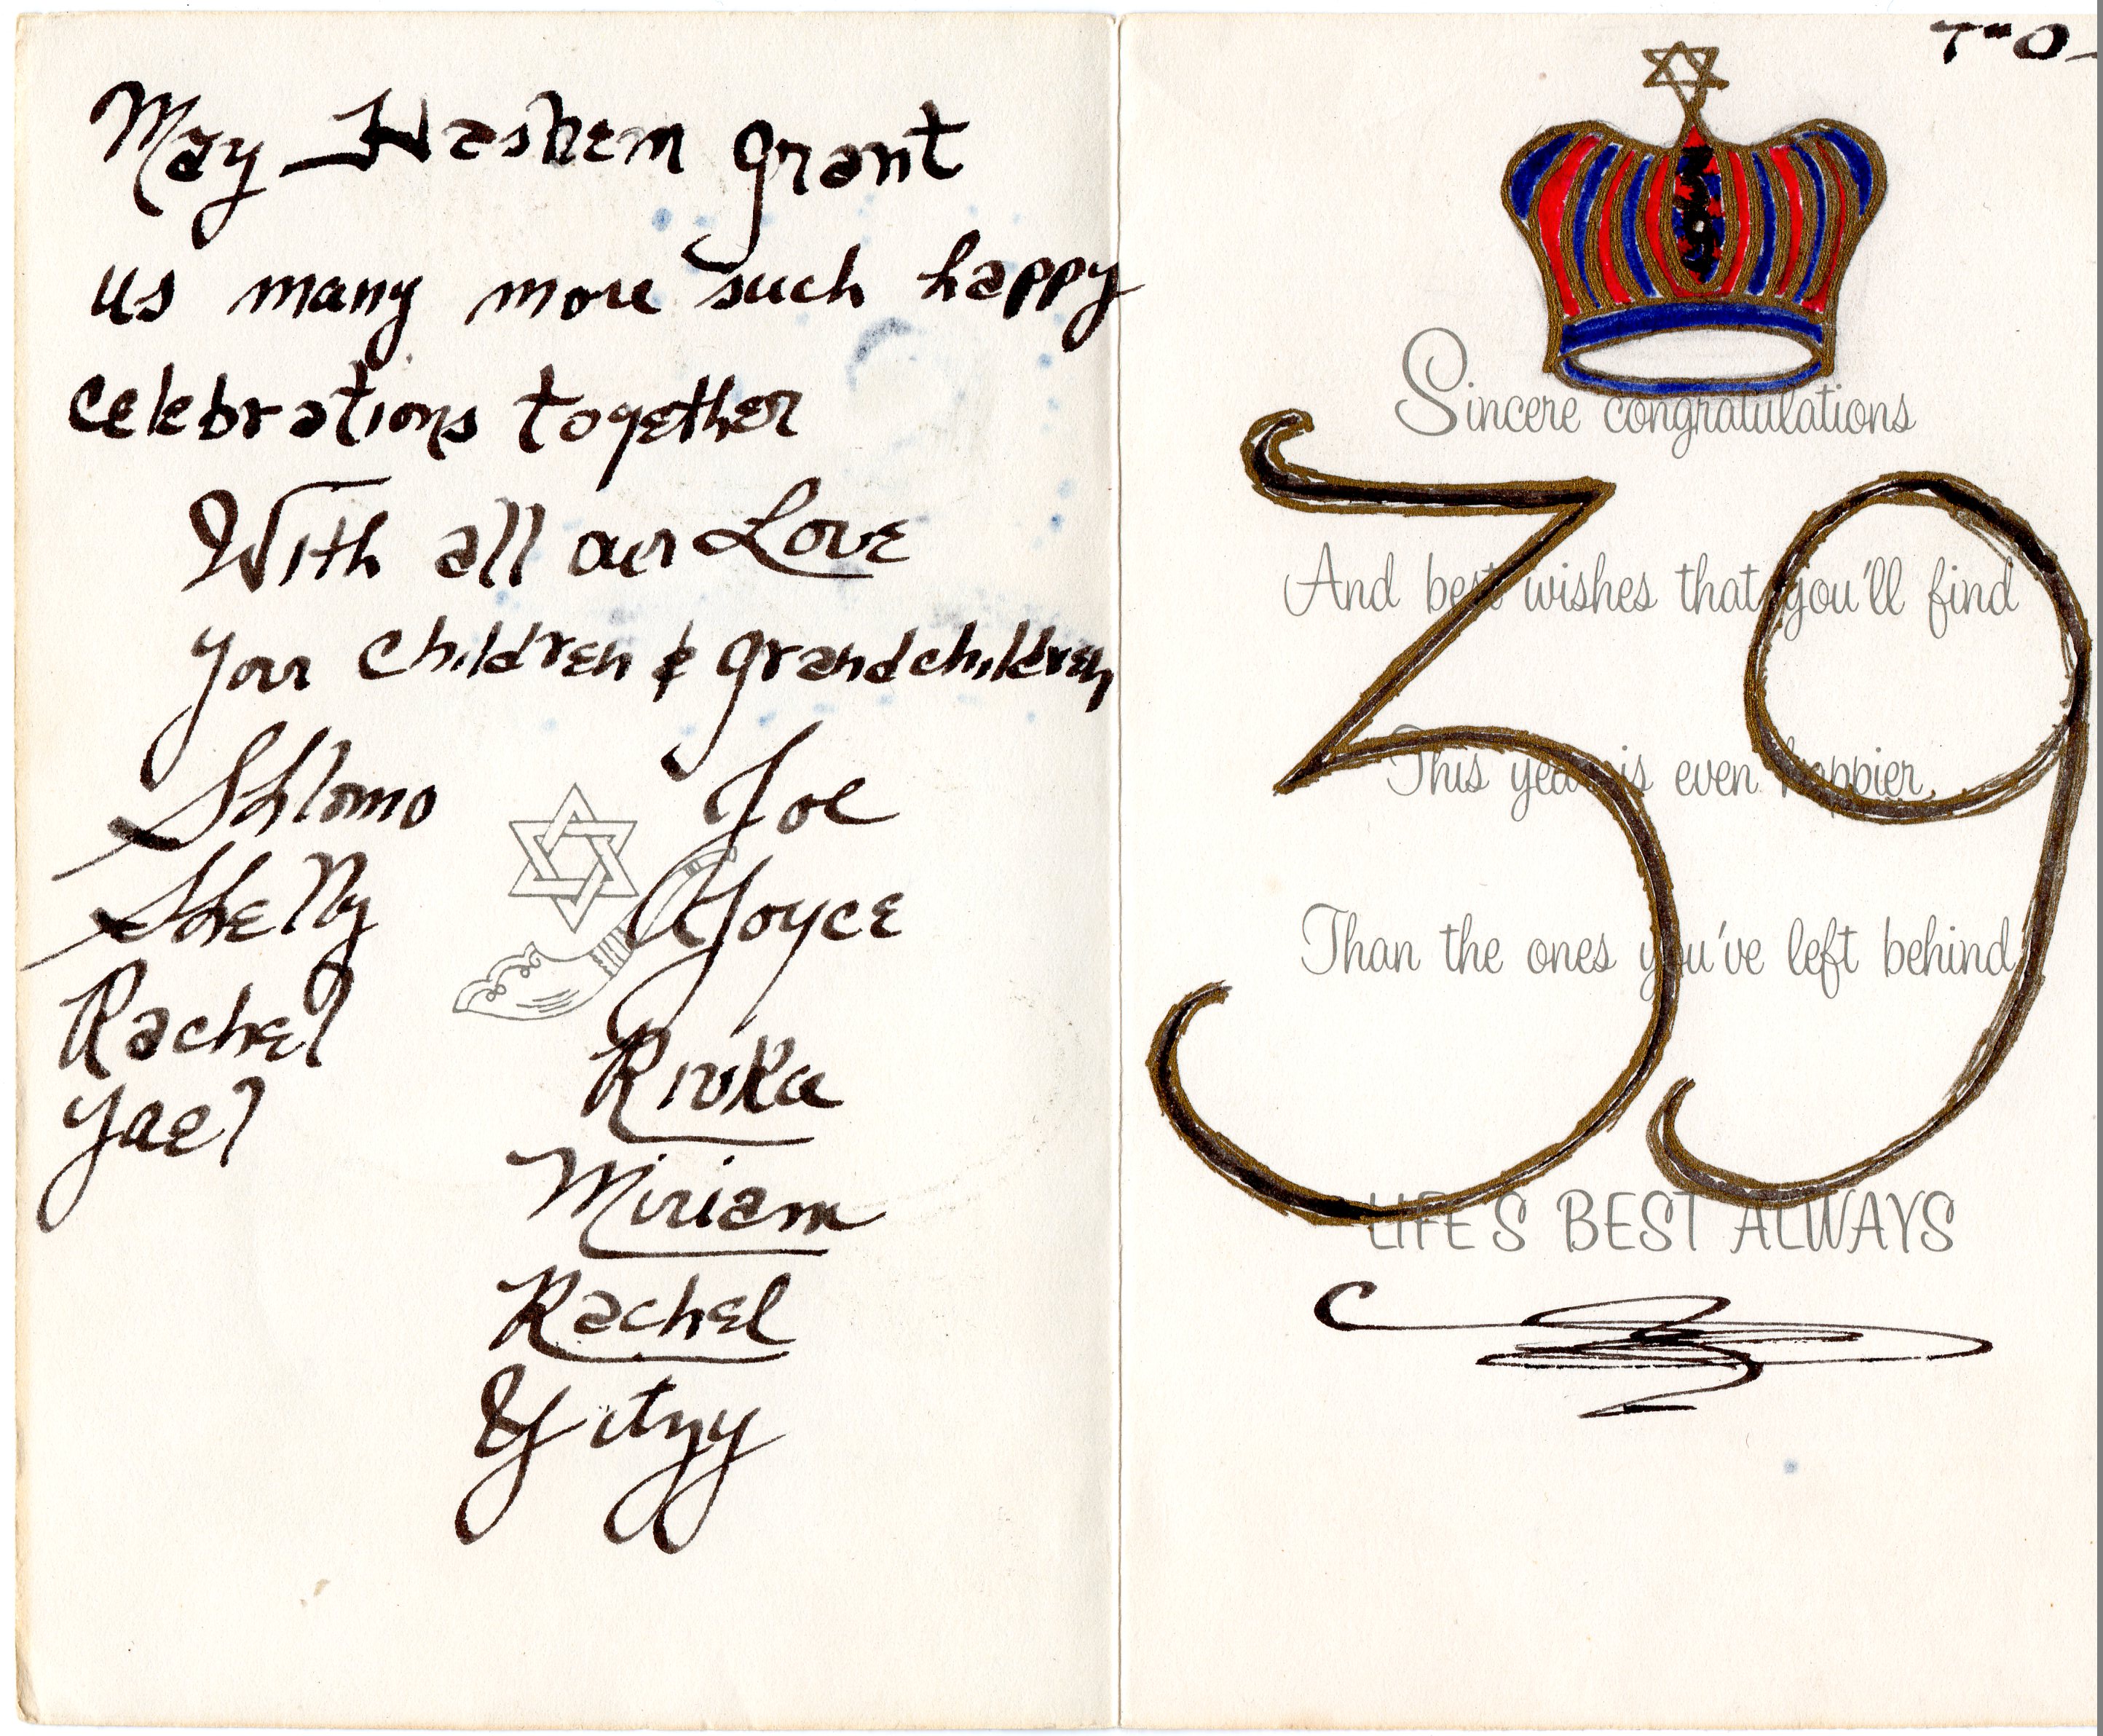 May Hashem grant
us many more such happy
celebrations together
With all our Love
your children & grandchildren
Shlomo
Shelly
Rachel
Yael
Joe
Joyce
Rivka
Miriam
Rachel
Yitzy
39
Sincere congratulations
39
And best wishes that you'll find
This year is even happier
Than the ones you've left behind
LIFE'S BEST ALWAYS